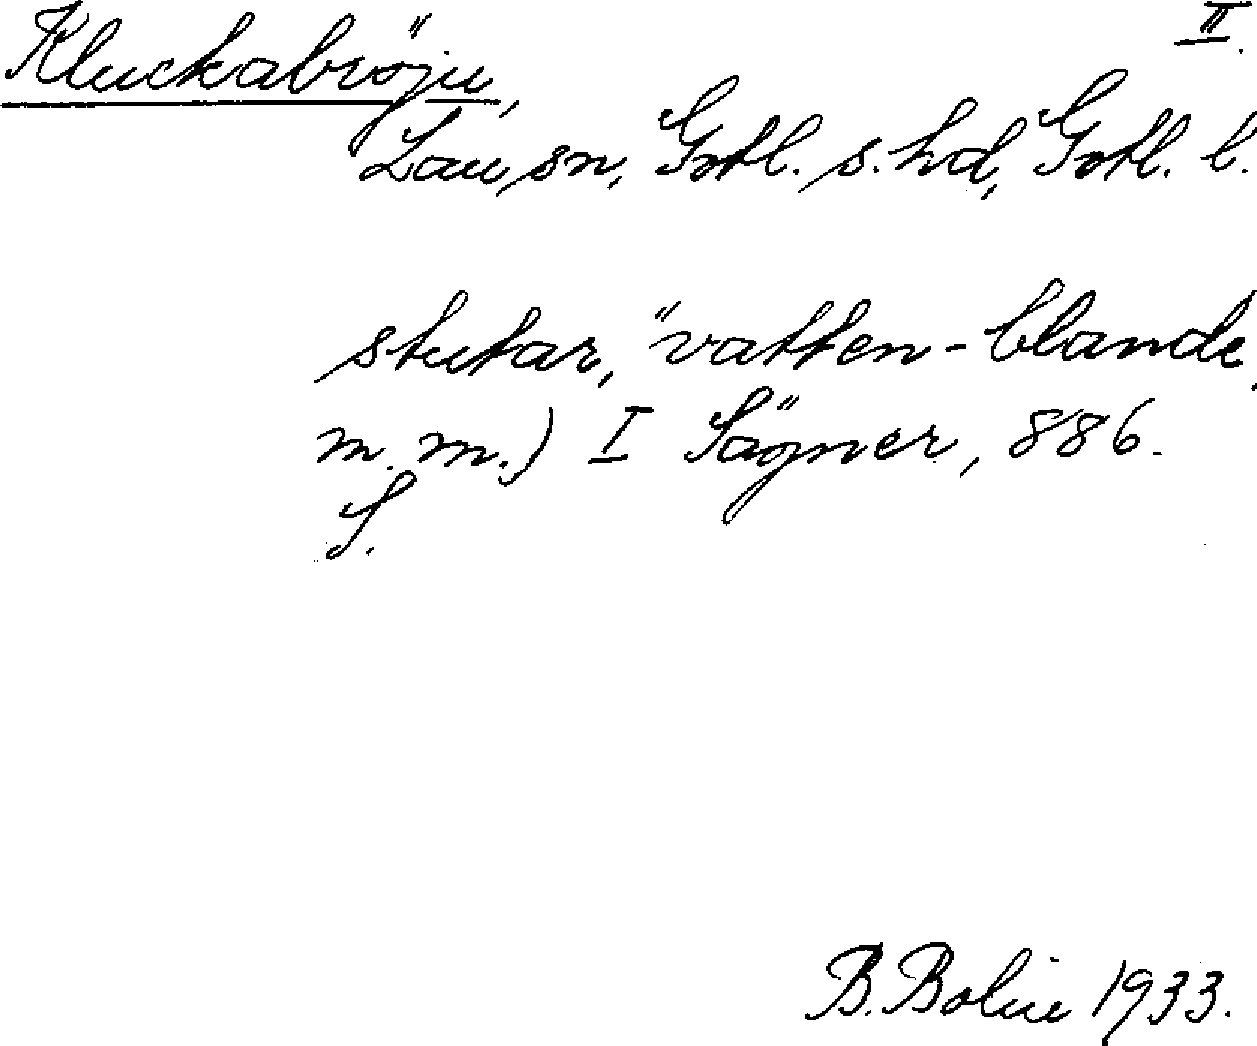 Kluckabröju, II.
Lau sn, Gotl. s. hd, Gotl. l.
stutar, "vatten-blande,
m. m.) I Sägner, 886.
S.
B. Bolin 1933.